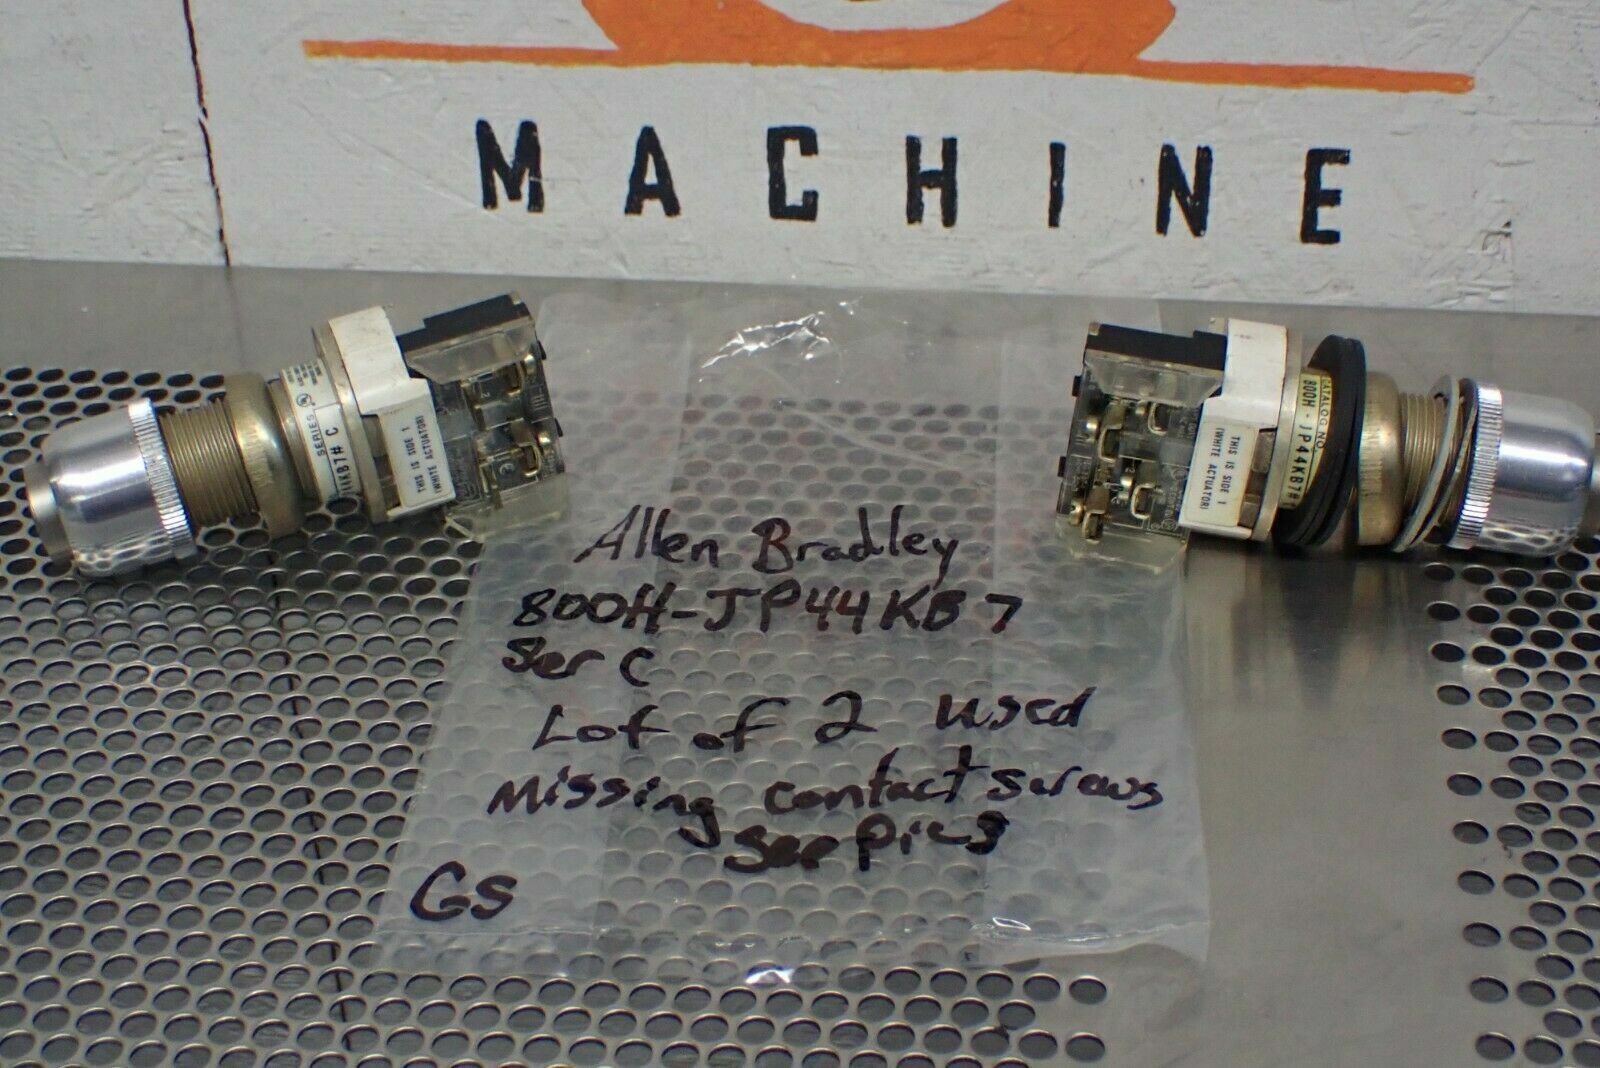 MACHINE
SERIES C
44KB7#
THIS IS SIDE 1
(WHITE ACTUATOR)
CATALOG NO.
800H-JP44KB7#
THIS IS SIDE 1
(WHITE ACTUATOR)
Allen Bradley
800H-JP44KB7
Ser C
Lot of 2 used
Missing contact screws
See pics
GS